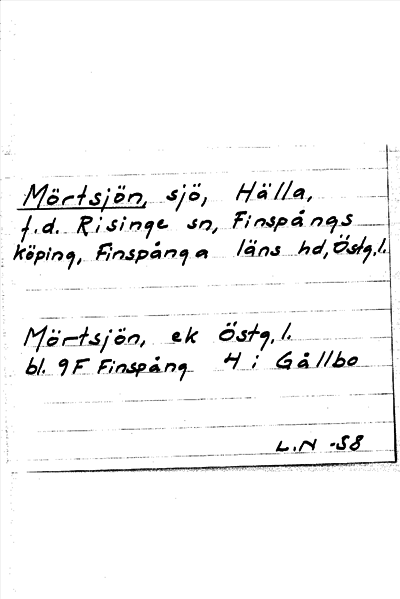 Mörtsjön, sjö, Hälla,
f.d. Risinge sn, Finspångs
köping, Finspånga läns hd, Östg.l.
Mörtsjön, ek Östg.l.
bl. 9F Finspång 4 i Gållbo
L.N -58